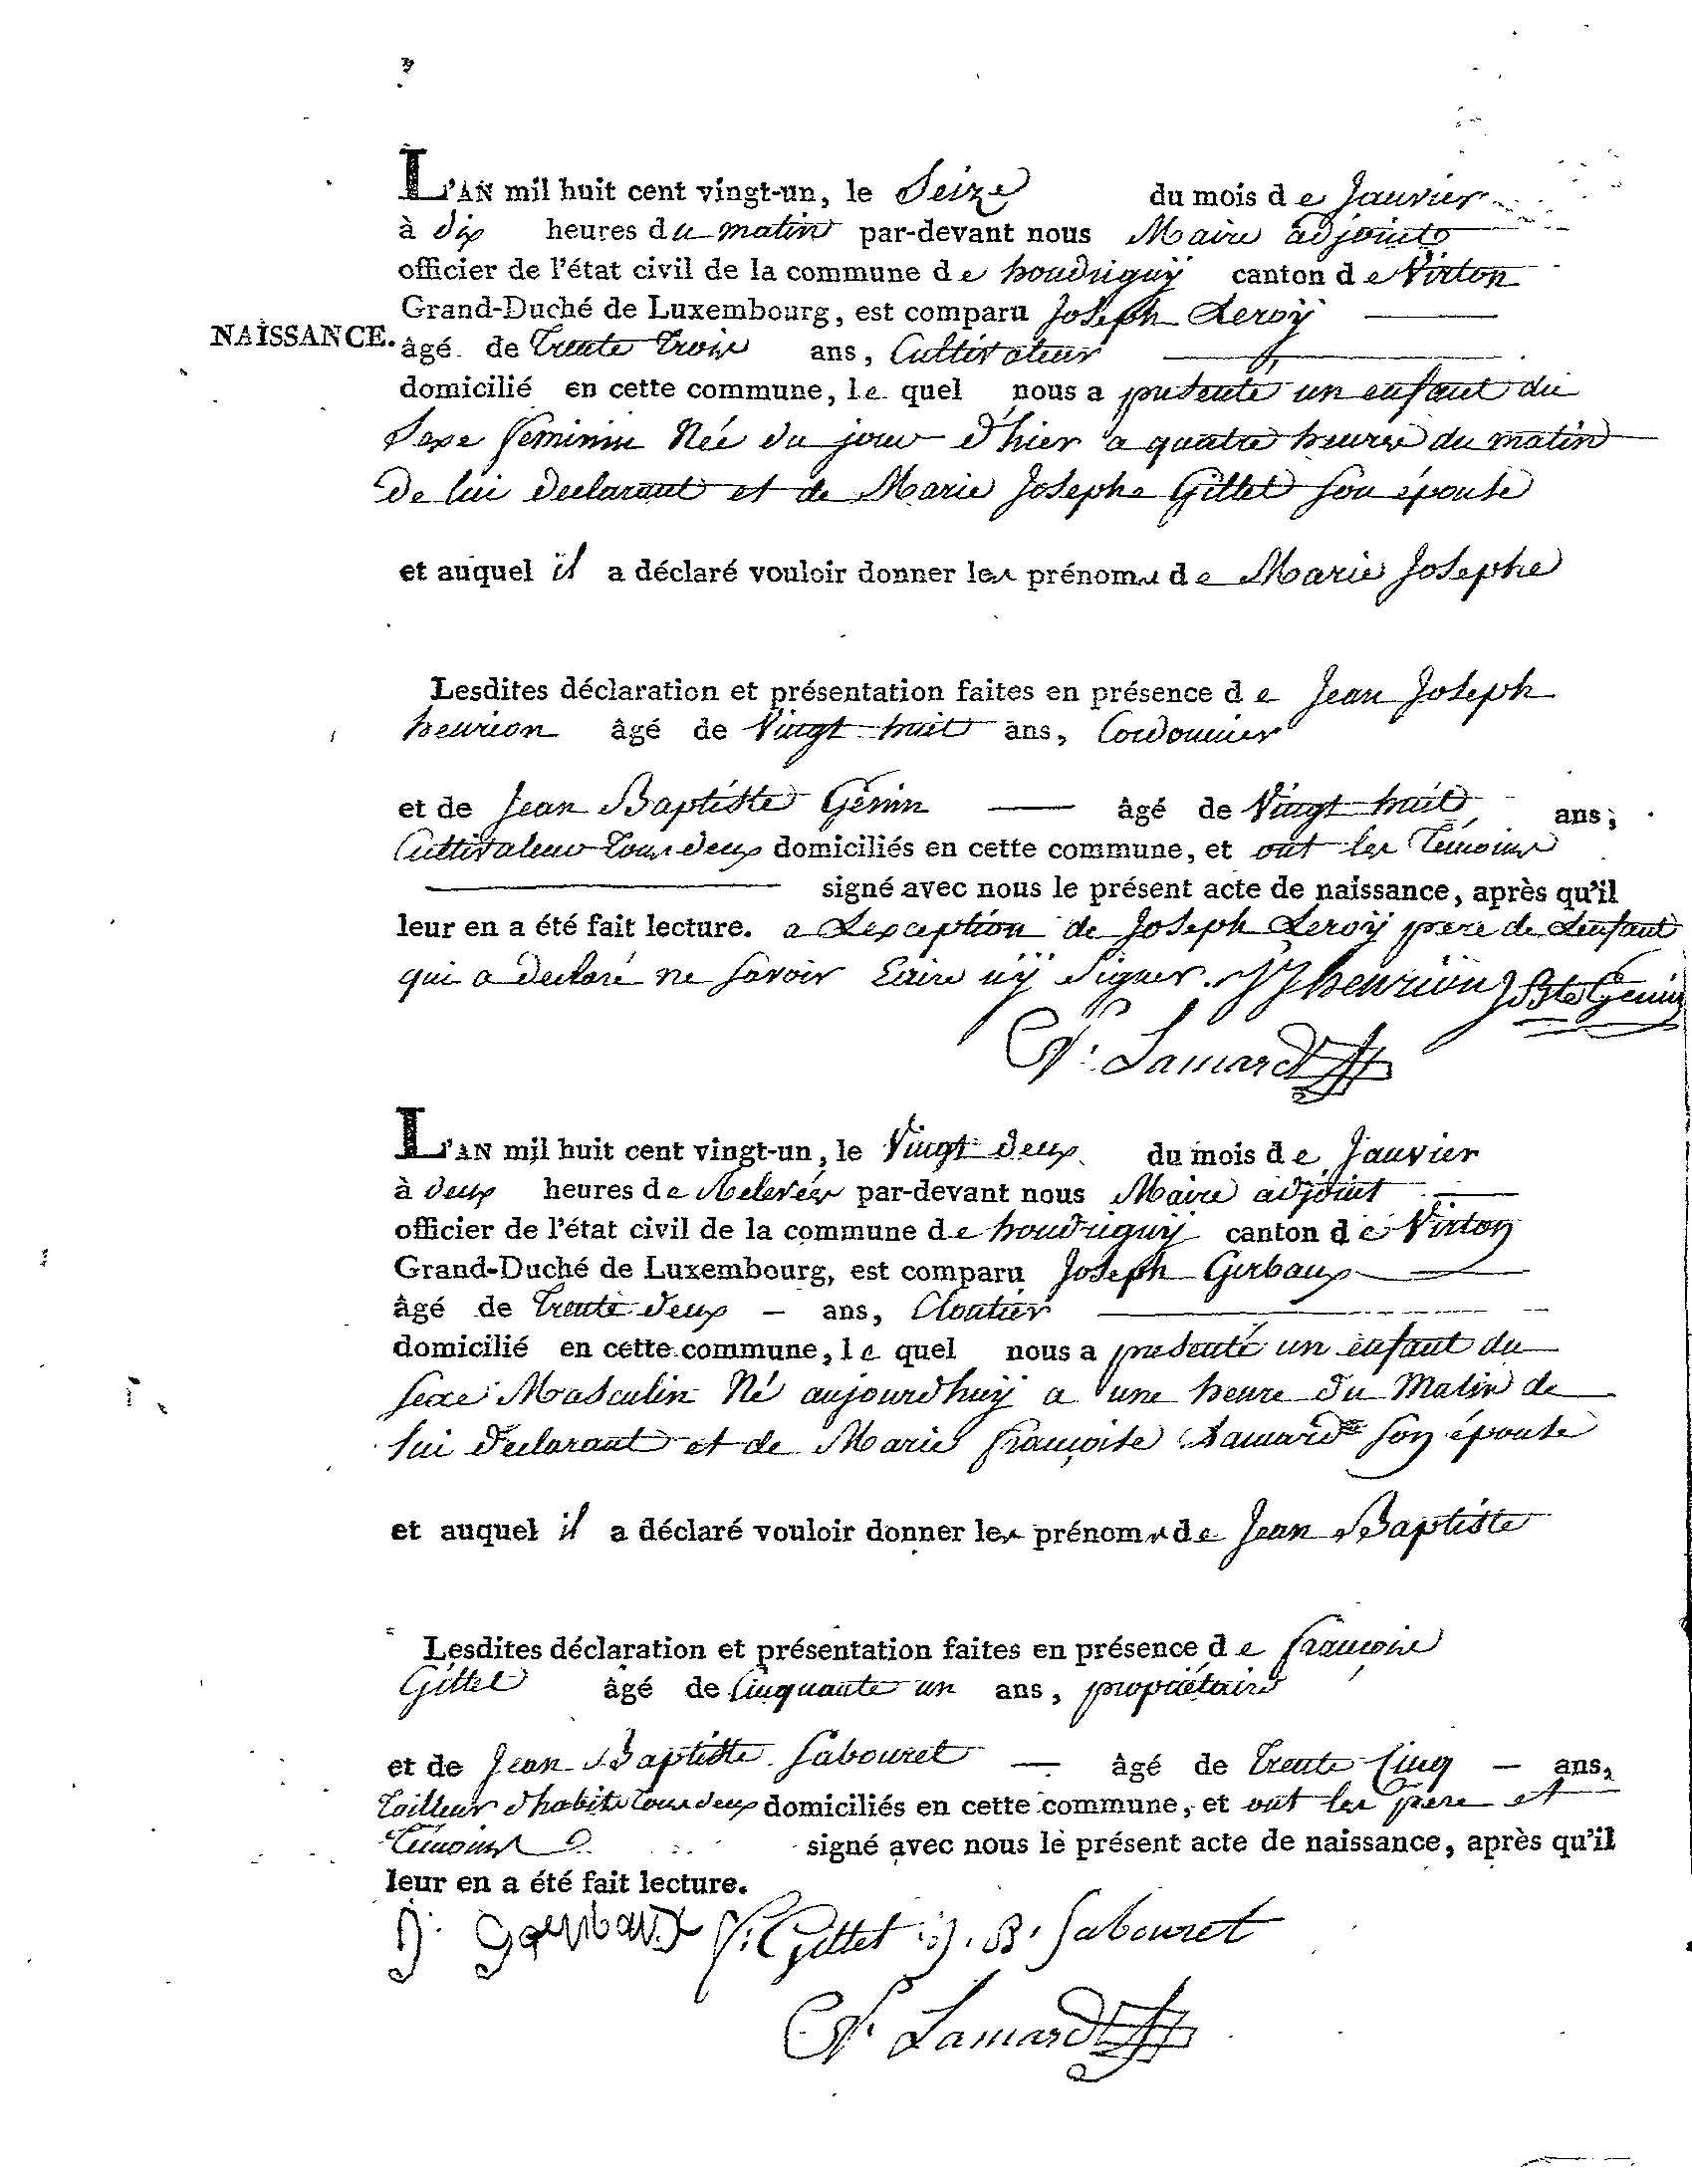 L'AN mil huit cent vingt-un, le Seize du mois de Janvier
à dix heures du matin par-devant nous Maire adjoint
officier de l'état civil de la commune de houdriguÿ canton de Virton
Grand-Duché de Luxembourg, est comparu Joseph Leroÿ
NAISSANCE.
âgé de Trente Trois ans, Cultivateur
domicilié en cette commune, le quel nous a presenté un enfant du
Sexe feminin Née du jour d'hier a quatre heures du matin
de lui declarant et de Marie Josephe Gillet son épouse
et auquel il a déclaré vouloir donner les prénoms de Marie Josephe
Lesdites déclaration et présentation faites en présence de Jean Joseph
henrion âgé de Vingt huit ans, Cordonnier
et de Jean Baptiste Génin âgé de Vingt huit ans,
Cultivateur tous deux domiciliés en cette commune, et ont les Témoins
signé avec nous le présent acte de naissance, après qu'il
leur en a été fait lecture. a Lexception de Joseph Leroÿ pere de Lenfant
qui a declaré ne savoir Ecrire nÿ signer. JJ henrion JBte Génin
Lamard
L'AN mil huit cent vingt-un, le Vingt deux du mois de Janvier
à deux heures de Relevées par-devant nous Maire adjoint
officier de l'état civil de la commune de houdriguÿ canton de Virton
Grand-Duché de Luxembourg, est comparu Joseph Gerbaux
âgé de Trente deux ans, Cloutier
domicilié en cette commune, le quel nous a presenté un enfant du
sexe Masculin Né aujourdhuÿ a une heure du Matin de
lui declarant et de Marie françoise Lamard son épouse
et auquel il a déclaré vouloir donner les prénoms de Jean Baptiste
Lesdites déclaration et présentation faites en présence de françois
Gillet âgé de Cinquante un ans, propriétaire
et de Jean Baptiste Sabouret âgé de Trente Cinq ans,
Tailleur d'habits tous deux domiciliés en cette commune, et ont les pere et
Témoins signé avec nous le présent acte de naissance, après qu'il
leur en a été fait lecture.
J. Gerbaux f. Gillet J. B. Sabouret
Lamard